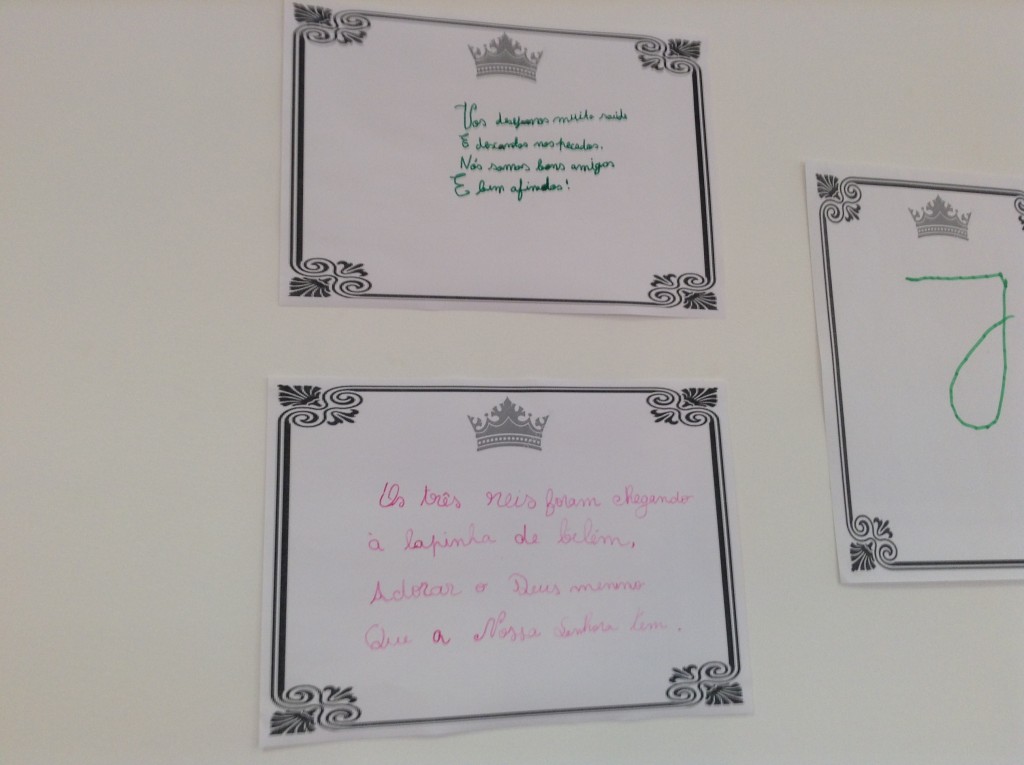 Vos desejamos muita saúde
E descontos nos pecados.
Nós somos bons amigos
E bem afinados!
Os três reis foram chegando
à lapinha de belém,
Adorar o Deus menino
Que a Nossa Senhora tem.